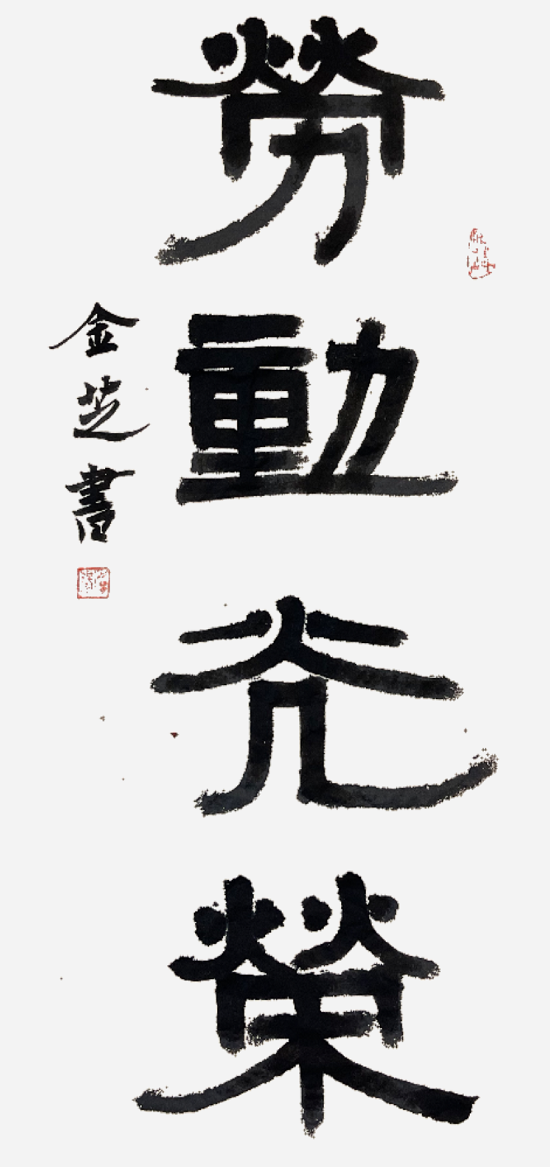 勞動光榮
金芝書